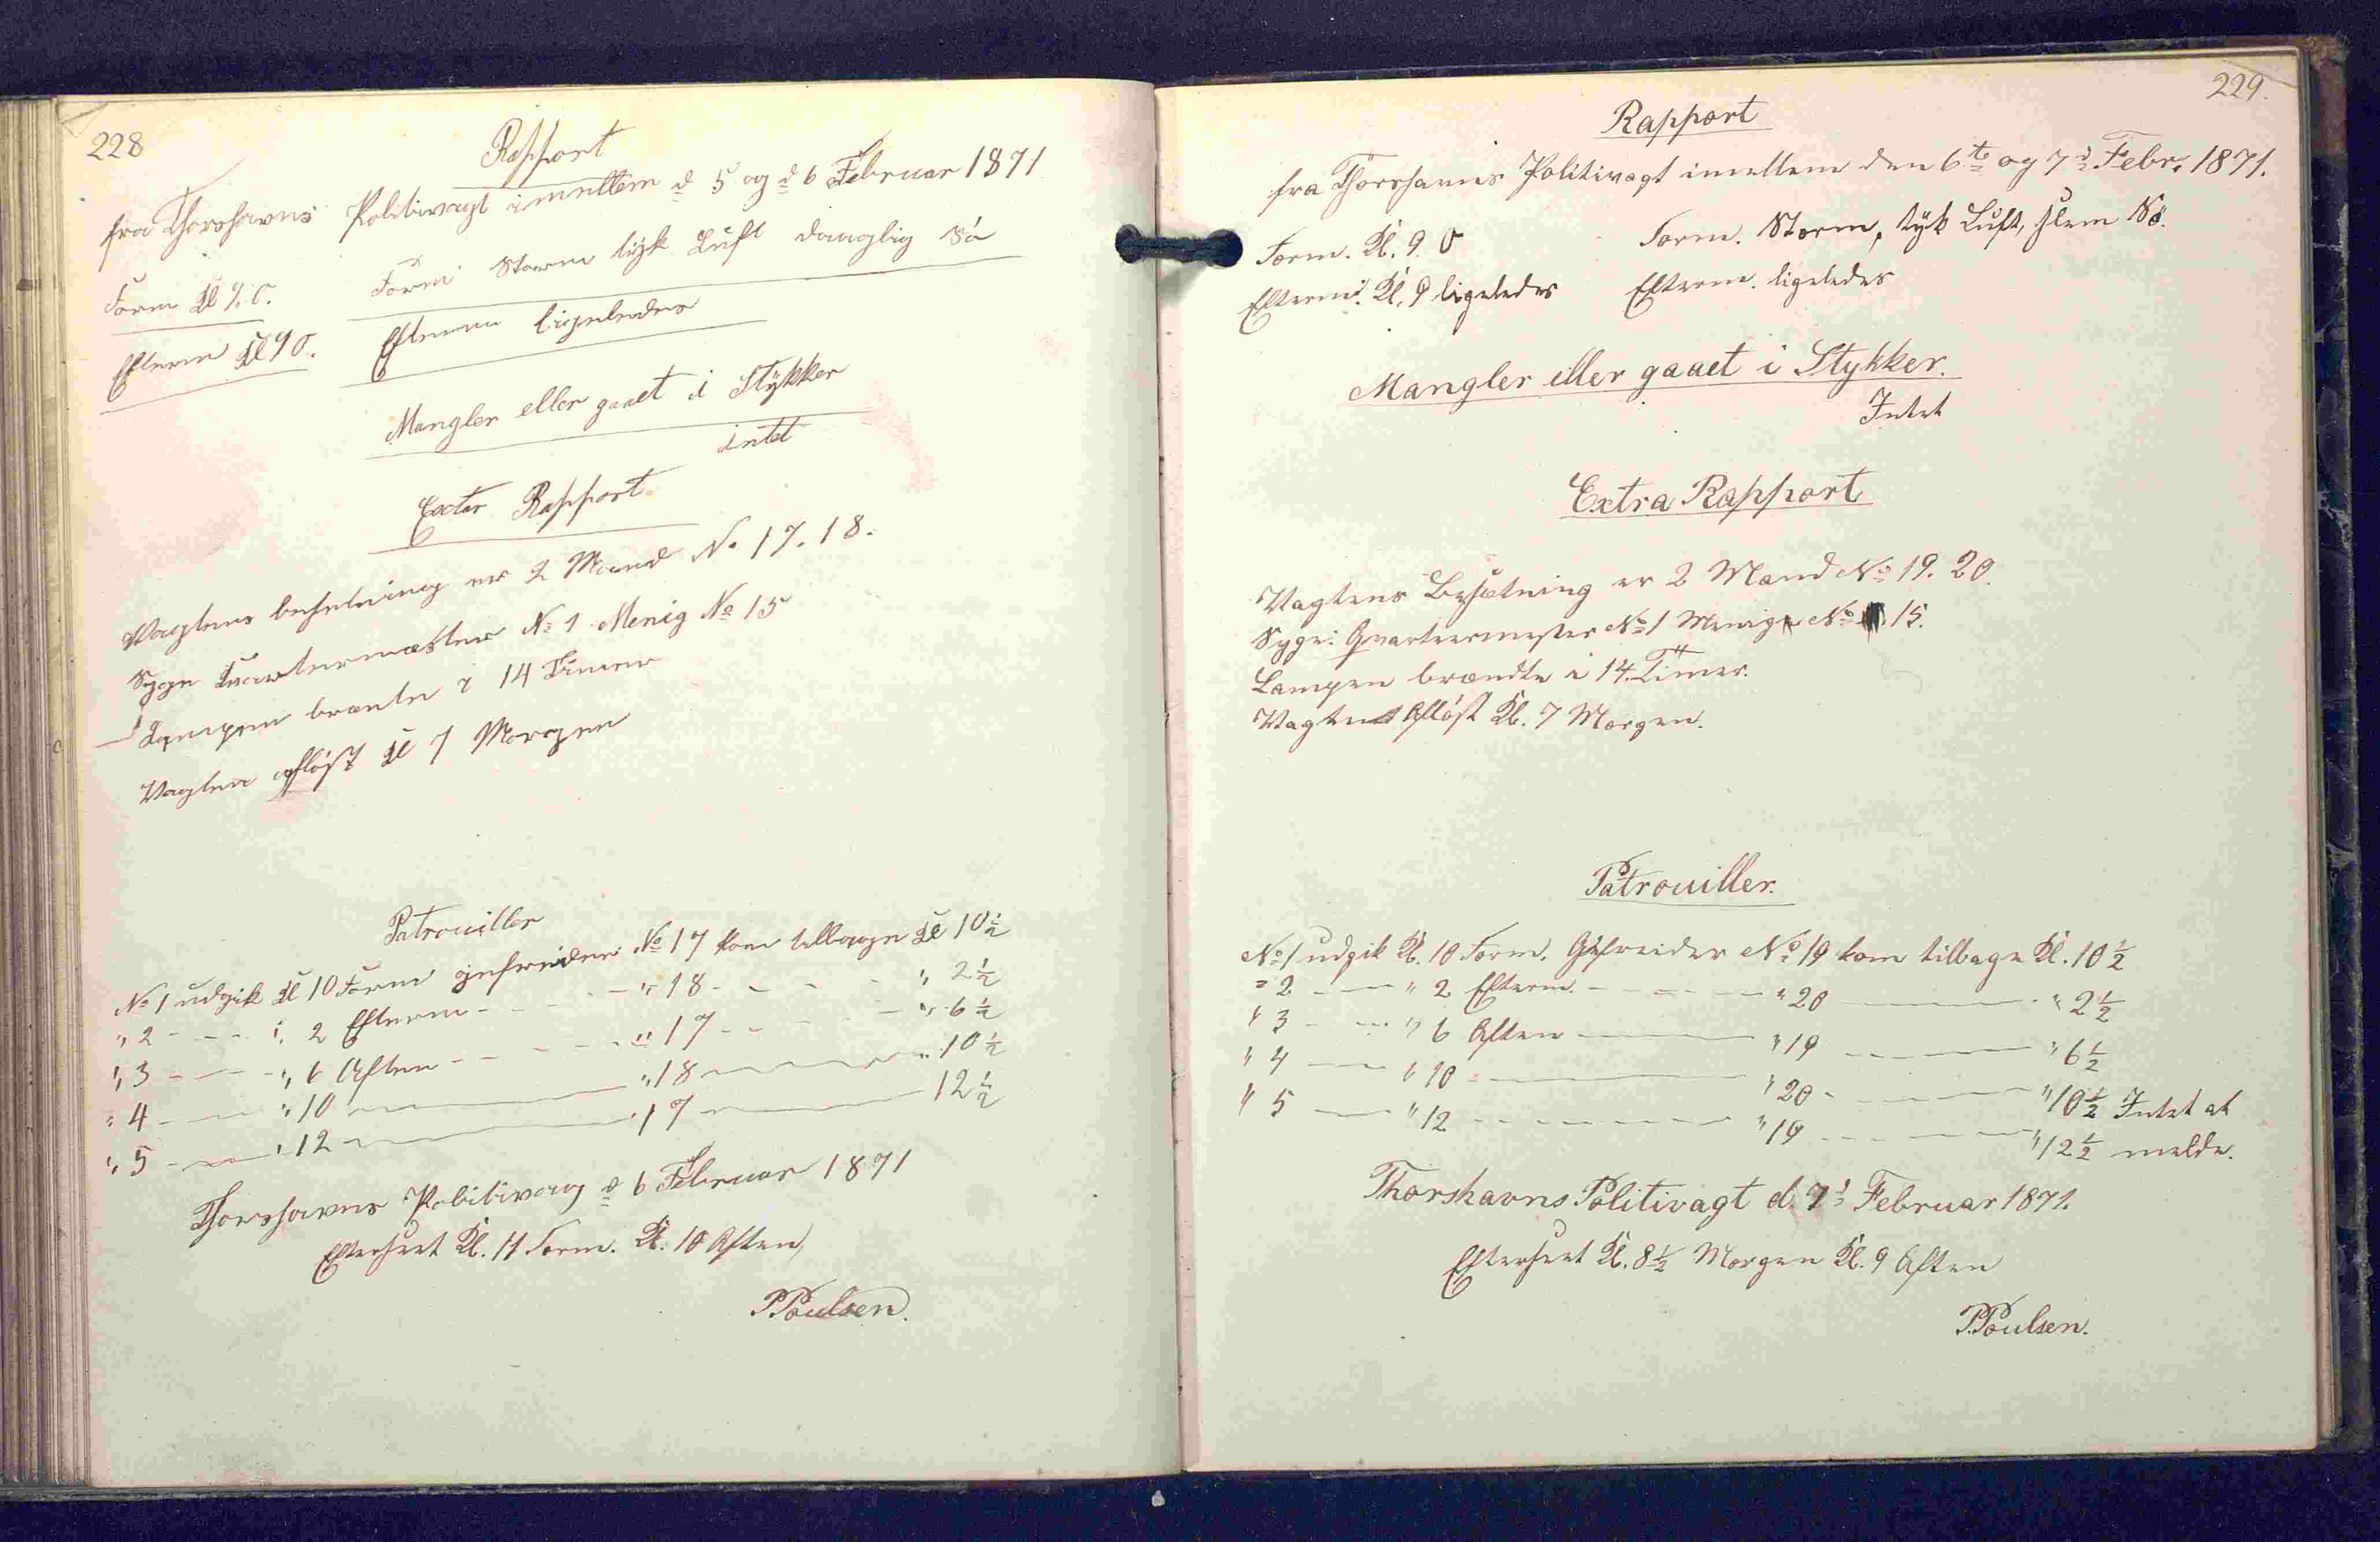 228
Rapport
fra Thorshavns Politivagt imellem d 5 og d 6 Februar 1871
Form Kl 9. O. Form Storm tyk Luft daarlig Sö
Efterm Kl 9 O. Efterm ligeledes
Mangler eller gaaet i Stykker
intet
Exter Rapport
Vagtens besetning er 2 Mand No 17. 18.
Syge Quartermester No 1 Menig No 15
Lampen brente i 14 Timer
Vagten aflöst Kl 7 Morgen
Patrouiller
No 1 udgik Kl 10 Form gefreider No 17 kom tilbage Kl 10 ½
" 2 - - - " 2 Efterm - - - - " 18 - - - - " 2 ½
" 3 - - - " 6 Aften - - - - " 17 - - - - " 6 ½
" 4 - - - " 10 - - - - " 18 - - - - " 10 ½
" 5 - - - " 12 - - - - " 17 - - - - 12 ½
Thorshavns Politivag d 6 Februar 1871
Efterseet Kl. 11 Form. Kl. 10 Aften,
PPoulsen.
229.
Rapport
fra Thorshavns Politivagt imellem den 6te og 7d Febr: 1871.
Form. Kl. 9. O Form. Storm, tyk Luft, slem Sö.
Efterm. Kl. 9 ligeledes Efterm. ligeledes
Mangler eller gaaet i Stykker.
Intet
Extra Rapport
Vagtens Besætning er 2 Mand No 19. 20.
Syge: Qvarteermester No 1 Menig No 15.
Lampen brændte i 14. Timer.
Vagten Aflöst Kl. 7 Morgen.
Patrouiller.
No 1 udgik Kl. 10 Form. Gefreider No 19 kom tilbage Kl. 10 ½
" 2 - - - " 2 Efterm. - - - - " 20 - - - - " 2 ½
" 3 - - - " 6 Aften - - - - " 19 - - - - " 6 ½
" 4 - - - " 10 - - - - " 20 - - - - " 10 ½ Intet at
" 5 - - - " 12 - - - - " 19 - - - - " 12 ½ melde.
Thorshavns Politivagt d. 7d Februar 1871.
Efterseet Kl. 8 ½ Morgen Kl. 9 Aften
P.Poulsen.